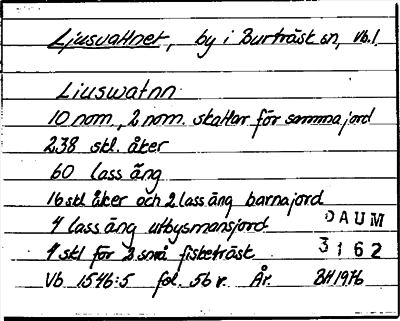 Ljusvattnet, by i Burträsk sn, Vb.l.
Liuswatnn
10 nom., 2 nom. skattar för samma jord
238 skl. åker
60 lass äng
16 skl åker och 2 lass äng barnajord
4 lass äng utbysmansjord
4 skl för 3 små fisketräsk
DAUM
3162
Vb 1546:5 fol. 56 v. År. BH 1976